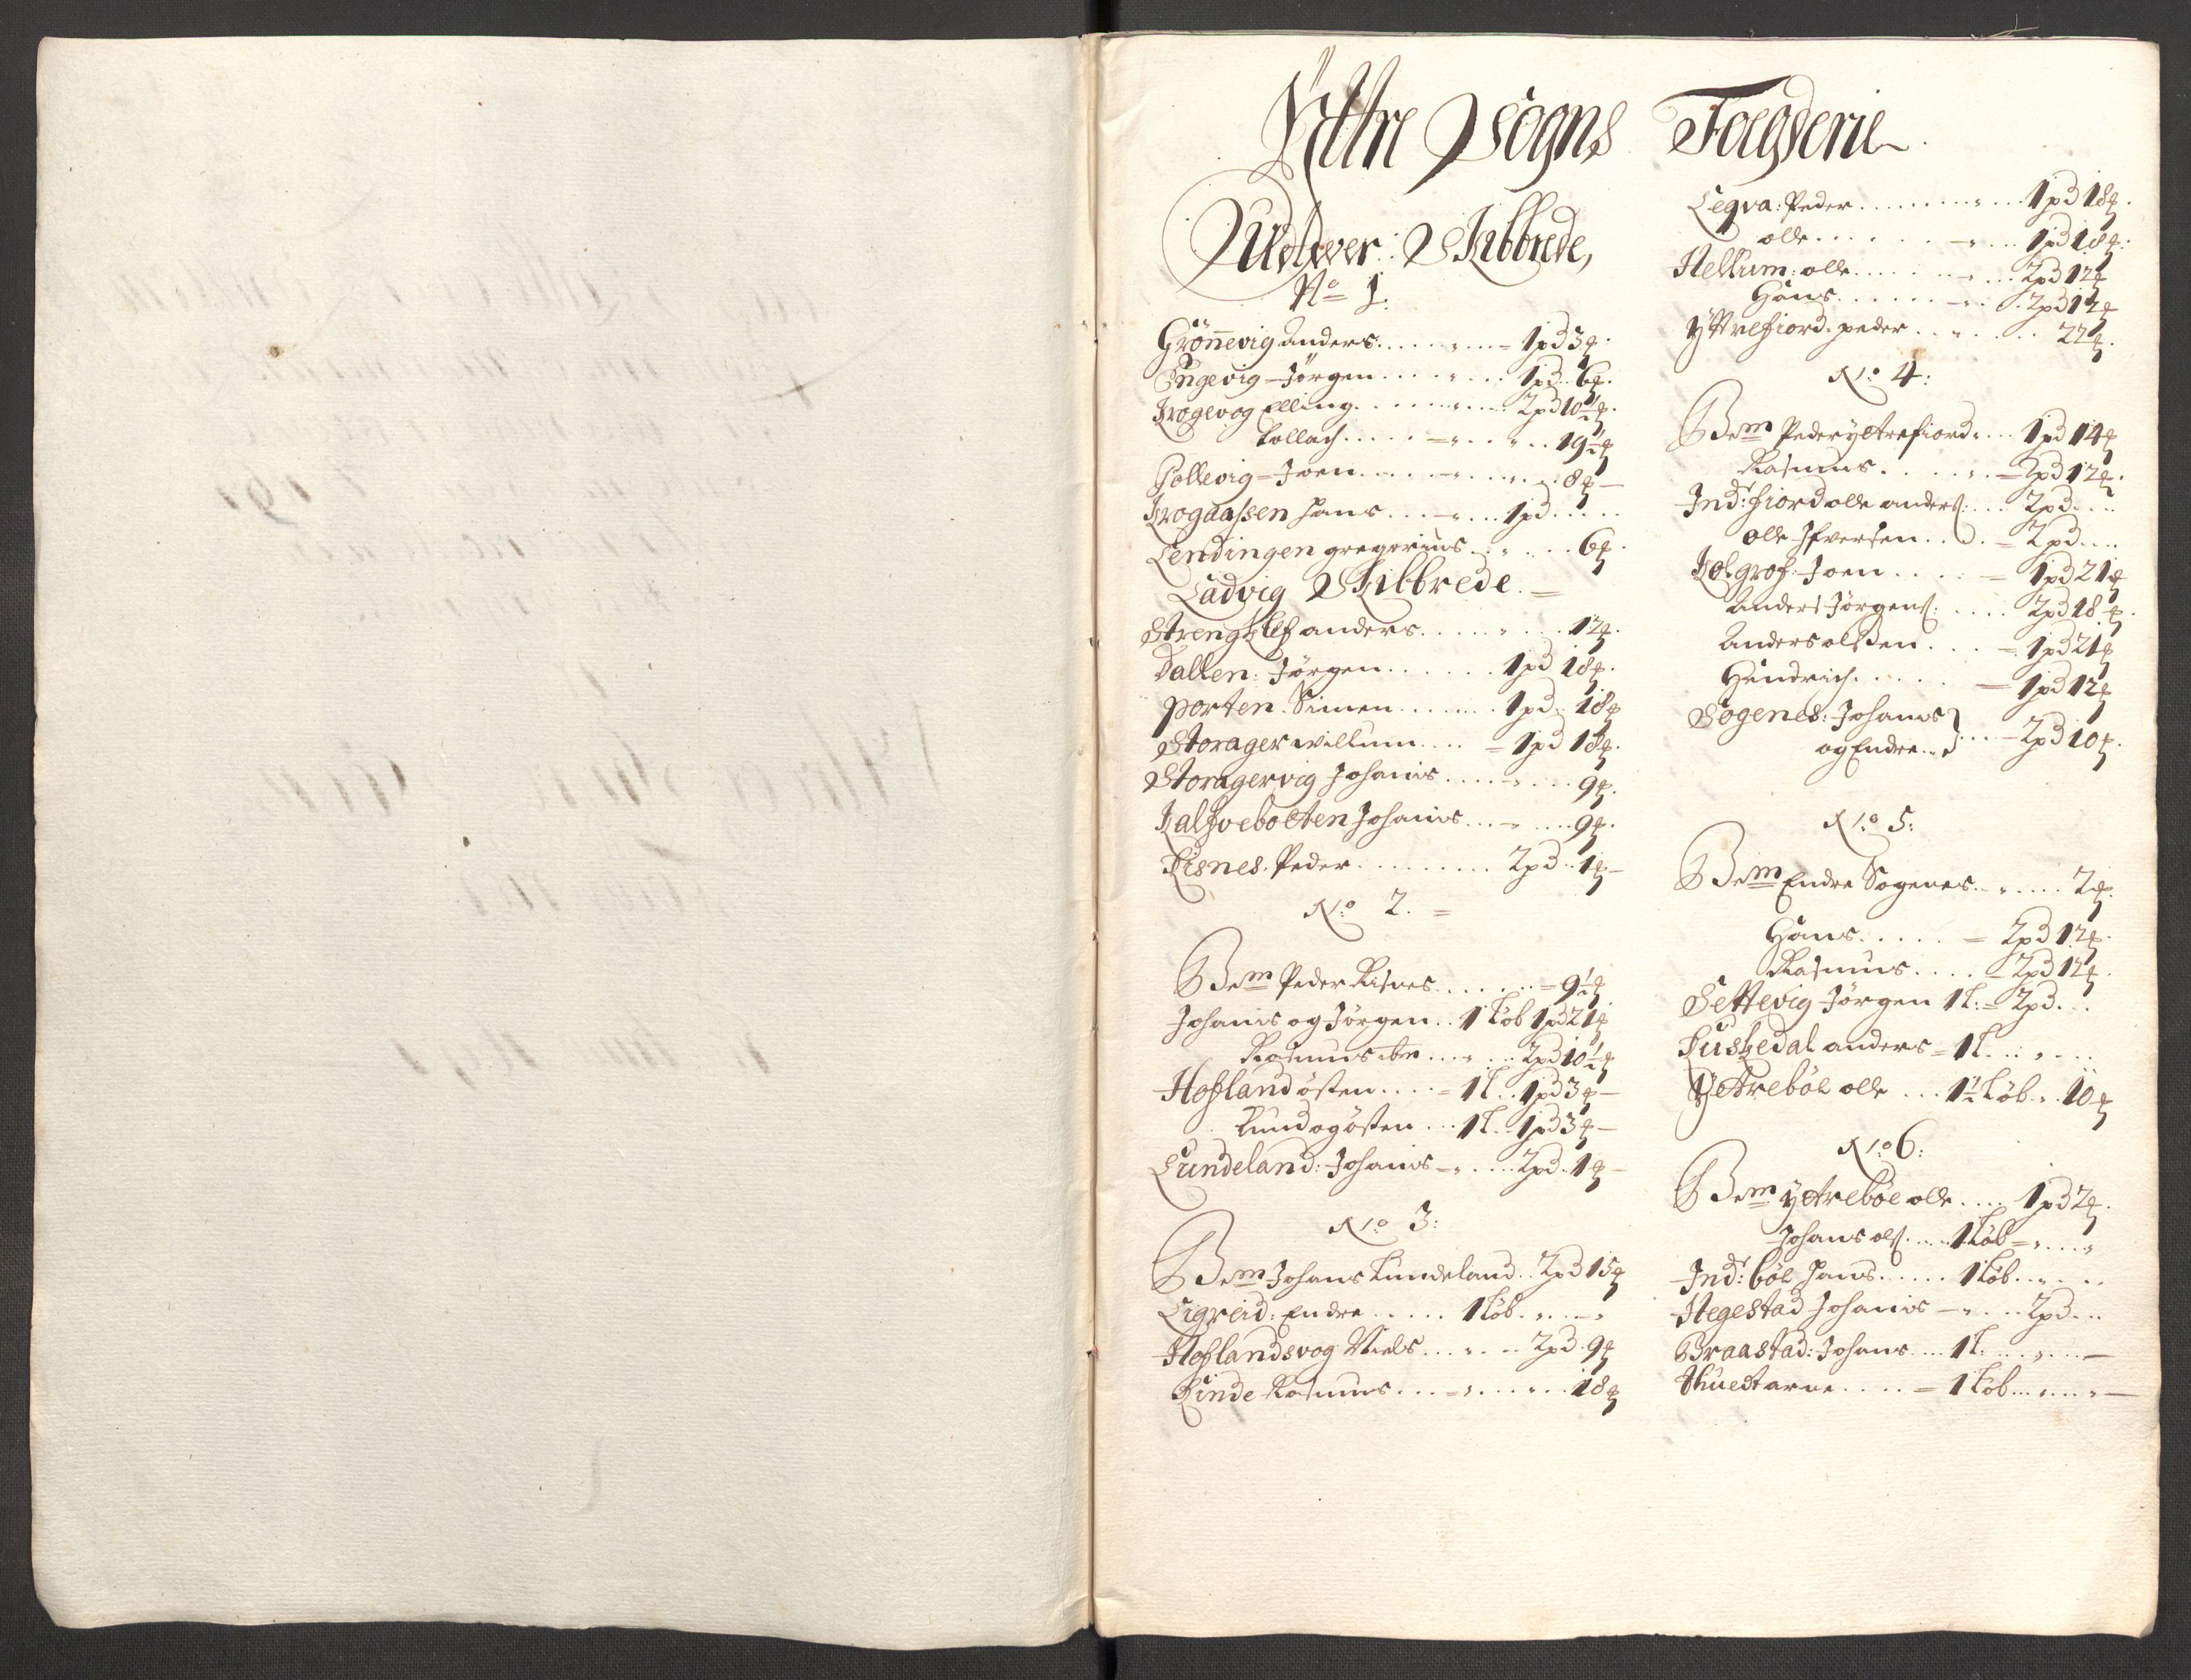 Yttre Sogns Foegderie
Udtwer: Skibbrede,
No 1.
Grönnevig Anders....... 1pd 3₰.
Engevig - Jörgen....... 1pd. 6₰.
Krogevog Elling....... 2pd 10½₰.
Tollach....... 19½₰
Pollevig - Joen....... 8₰
Krogaassen Hans....... 1pd....
Lendingen gregorius....... 6₰.
Ladvig Skibbrede.
Anders....... 12₰.
Dallen: Jörgen....... 1pd 18₰.
Porten. Simen....... 1pd. 18₰
Storager willum.... 1pd 18₰.
Storagervig Johanis....... 9₰.
Kalfvebotten Johanis....... 9₰.
Risnes. Peder....... 2pd. 1₰
No 2.
Bem Peder Risnes....... 9½₰
Johanis og Jörgen.. 1 Löb 1pd 21₰
Rasmus ibm....... 2pd 10½₰
Hofland östen.... 1 L. 1pd 3₰
Knud og östen... 1 L. 1pd 3₰
Lundeland: Johanis..... 2pd. 1₰
No 3:
Bem Johans Lundeland.. 2pd 15₰
Ligreid: Endre..... 1 Löb....
Hoflandsvog Niels...... 2pd. 9₰
Rinde Rasmus....... 18₰
Legva: Peder....... 1pd 18₰.
olle....... 1pd 18₰.
Hellum: olle....... 2pd 12₰
Hans....... 2pd 12₰
Yttrefiord. peder....... 22₰.
No 4:
Bem Peder yttrefiord... 1pd 14₰
Rasmus....... 2pd 12₰.
Indr: fiord olle anders:... 2pd....
olle Ifversen.... 2pd....
Kolgrof: Joen.... 1pd 21₰
Anders Jörgens:.... 2pd 18₰.
Anders olssen... 1pd 21₰
Hendrich..... 1pd 12₰
Sögenes: Johanis
og Endre.. } .... 2pd 10₰.
No 5:
Bem Endre Sögenes....... 2₰.
Hans..... 2pd 12₰.
Rasmus.... 2pd 12₰.
Settevig Jörgen 1 L: 2pd...
Fuskedal anders 1 L.....
Yttreböe olle... 1½ Löb.. 10₰
No 6:
Bem yttreböe olle.... 1pd 2₰.
Johans ols..... 1 Löb.....
Indr: böe Hans..... 1 Löb.....
Hegestad Johanis..... 2pd...
Braastad: Johans.... 1 L.....
Thuedt arne.... 1 Löb.....